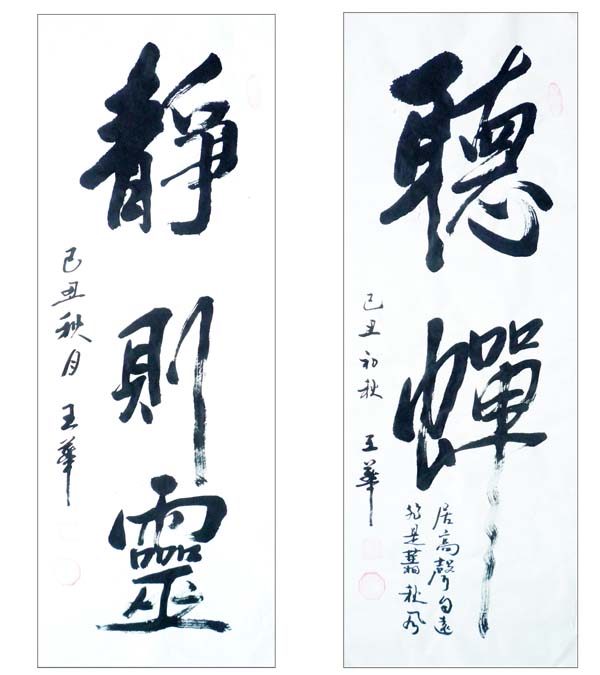 聽蟬
居高聲自遠
非是藉秋風
己丑初秋 王華
靜則靈
己丑秋月 王華